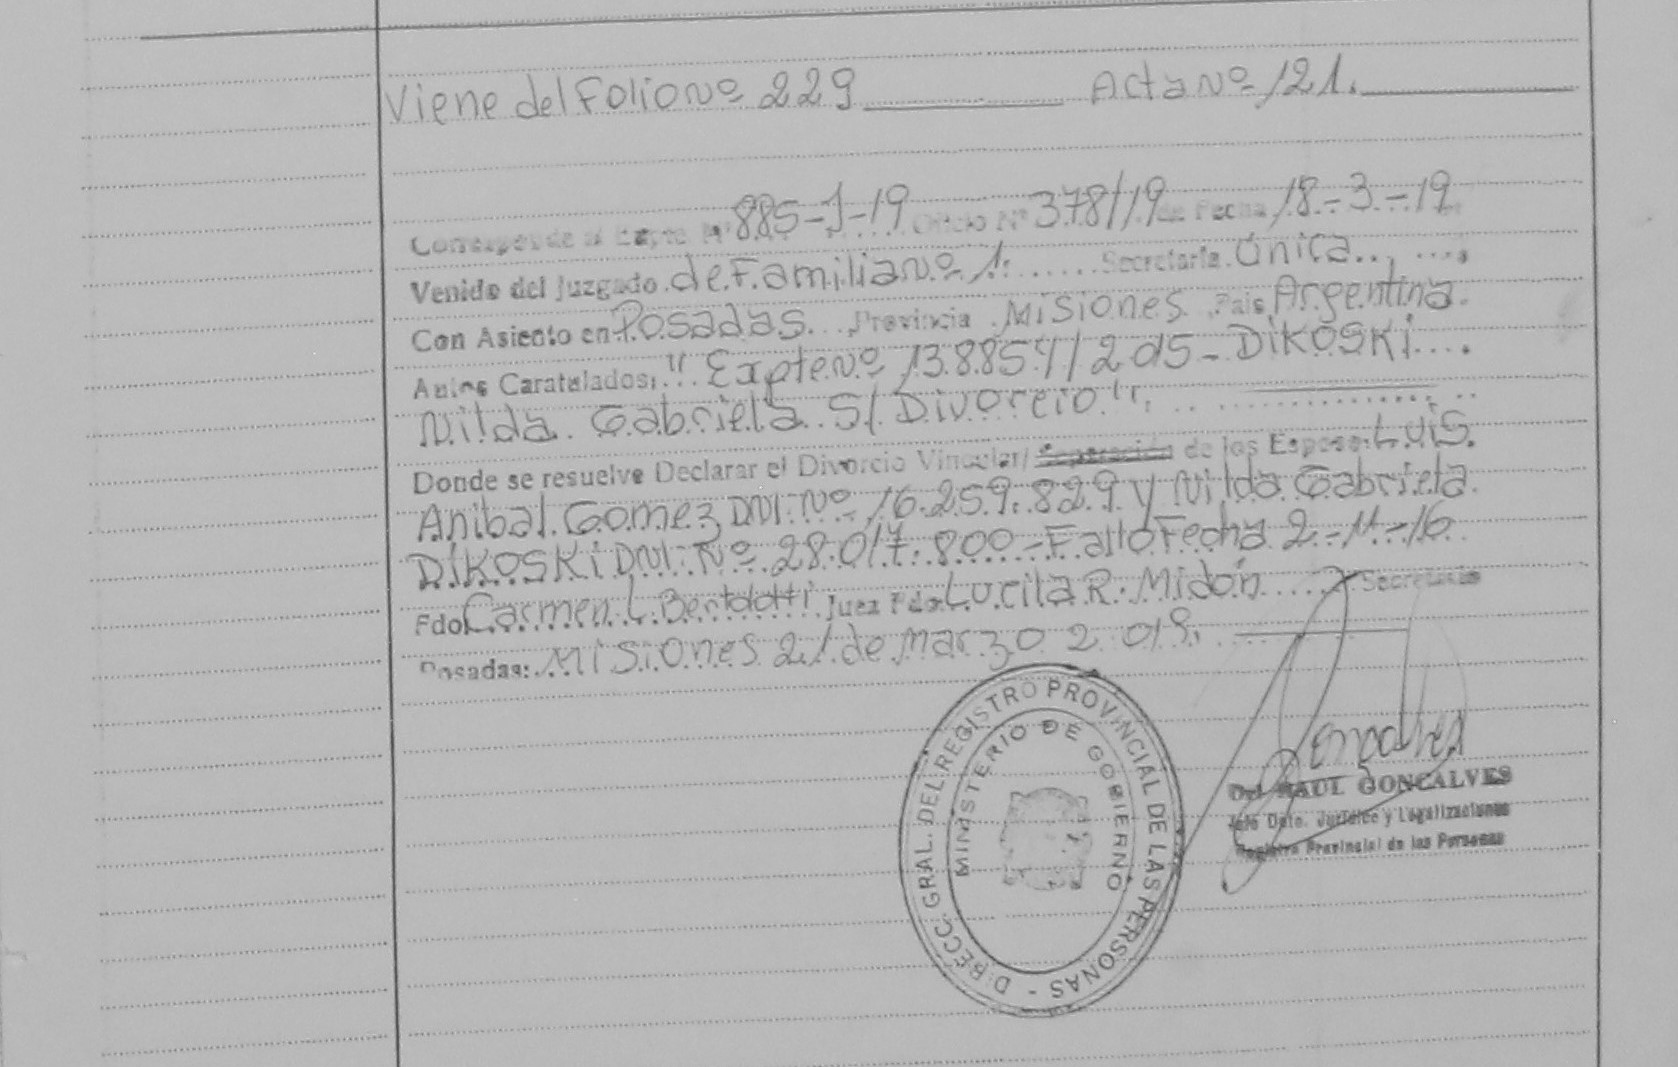 Viene del Folio Nº 229 Acta Nº 121.
Corresponde al Expte Nº 885-J-19 Oficio Nº 378/19 de Fecha 18-3-19
Venido del Juzgado de Familia Nº 1. Secretaria Única
Con Asiento en Posadas Provincia Misiones Pais Argentina.
Autos Caratulados: "Expte Nº 138854/2015 - DIKOSKI
Nilda Gabriela S/ Divorcio".
Donde se resuelve Declarar el Divorcio Vincular/ Separación de los Esposos Luis
Anibal Gomez DNI Nº 16.259.829 y Nilda Gabriela
DIKOSKI DNI Nº 28.017.800 - Fallo Fecha 2-11-16
Fdo Carmen L. Bertolotti Juez Fdo Lucila R. Midón Secretaria
Posadas: Misiones 21 de Marzo 2019.
DIRECC. GRAL. DEL REGISTRO PROVINCIAL DE LAS PERSONAS -
MINISTERIO DE GOBIERNO
RAUL GONCALVES
Jefe Dpto. Jurídico y Legalizaciones
Registro Provincial de las Personas